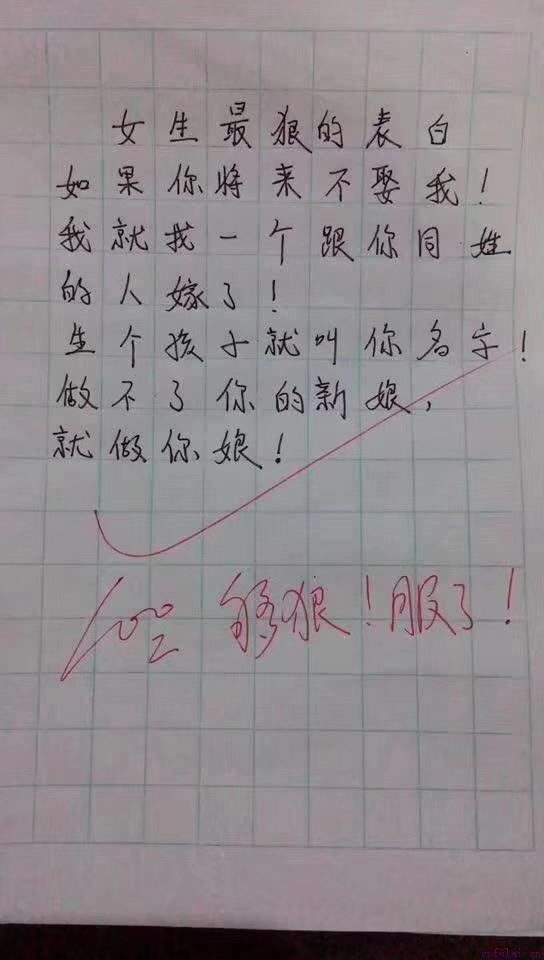 女生最狠的表白
如果你将来不娶我！
我就找一个跟你同姓
的人嫁了！
生个孩子就叫你名字！
做不了你的新娘，
就做你娘！
100 够狠！服了！
cnfulai.cn